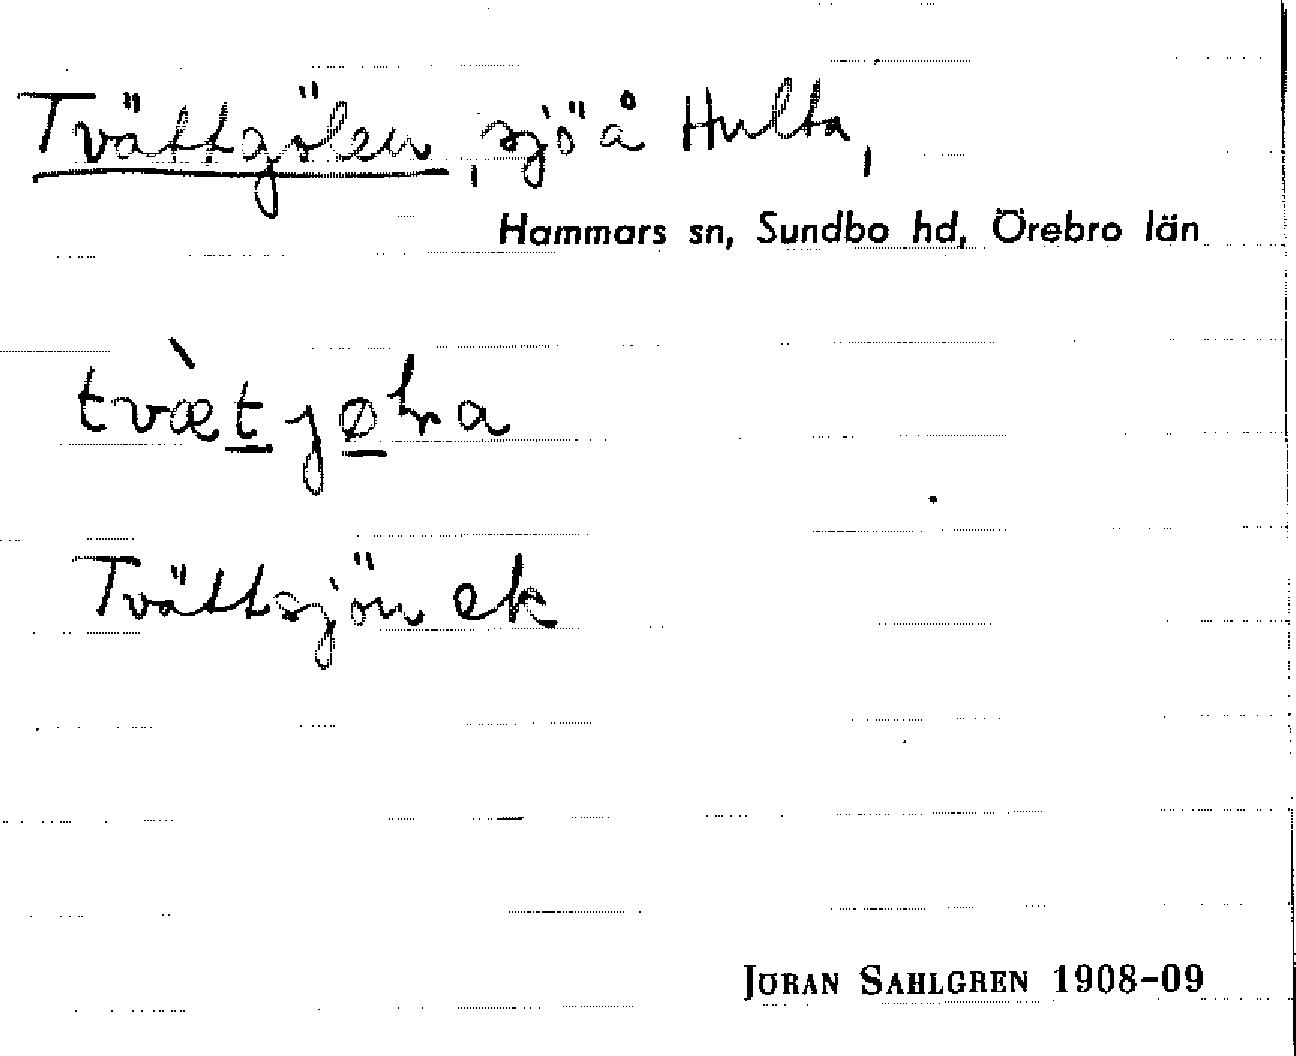 Tvättgölen, sjö å Hulta,
Hammars sn, Sundbo hd, Örebro län
Tvättsjön ek
JÖRAN SAHLGREN 1908-09